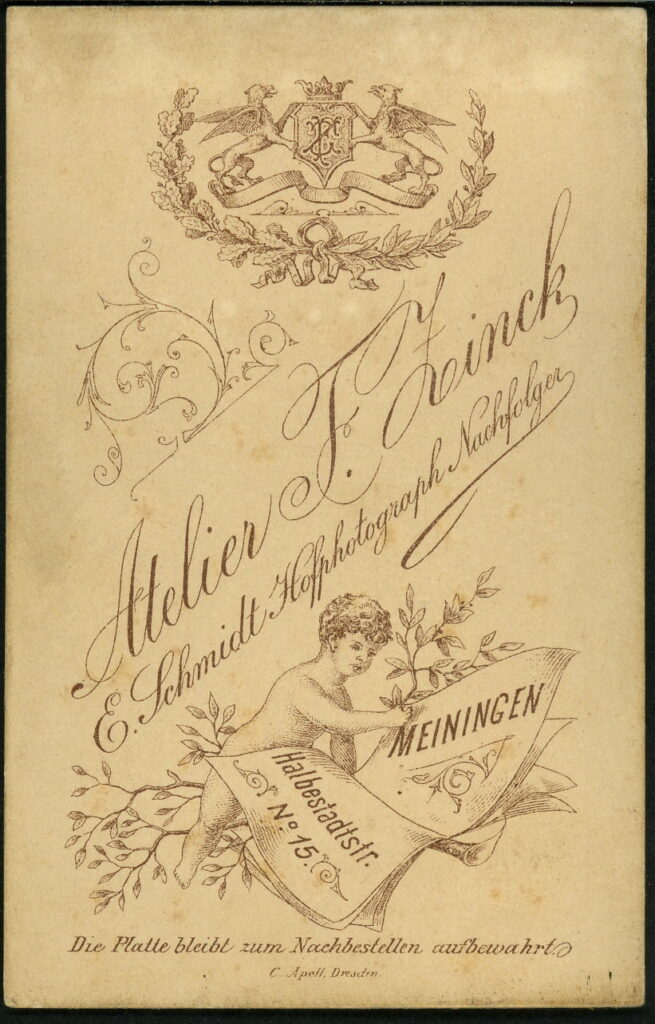 Atelier F. Zinck
E. Schmidt Hofphotograph Nachfolger
MEININGEN
Halbestadtstr.
No. 15.
Die Platte bleibt zum Nachbestellen aufbewahrt.
C. Apoll, Dresden.